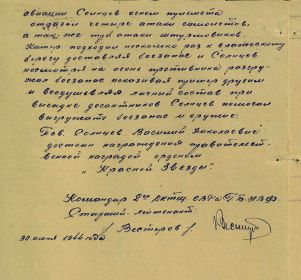 авиации Солнцев огнем пулемета
отразил четыре атаки самолетов,
а так-же три атаки штурмовиков.
Катер подходил несколько раз к вражескому
берегу доставляя боезапас и Солнцев
несмотря на огонь противника разгру-
жал боезапас показывая пример другим
и воодушевляя личный состав при
высадке десантников Солнцев помогал
выгружать боезапас и оружие.
Тов. Солнцев Василий Николаевич
достоин награждения правительст-
венной наградой орденом
"Красной Звезды".
Командир 2го
Старший-лейтенант
/ Вестеров /
30 июня 1944 года